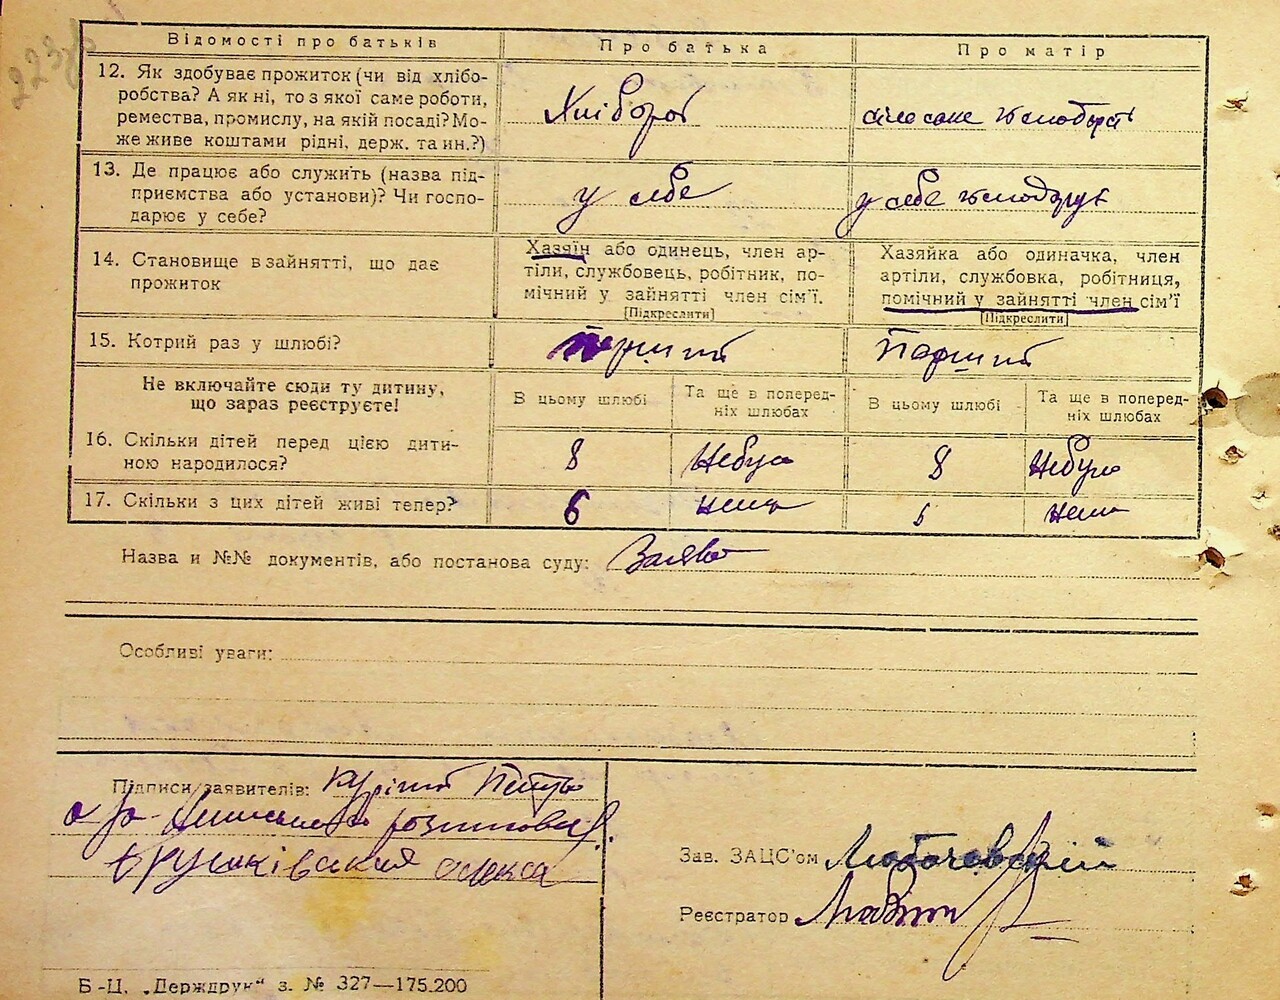 Відомості про батьків Про батька Про матір
12. Як здобуває прожиток (чи від хлібо-
робства? А як ні, то з якої саме роботи,
ремества, промислу, на якій посаді? Мо-
же живе коштами рідні, держ. та ин.?)
Хлібороб
13. Де працює або служить (назва під-
приємства або установи)? Чи госпо-
дарює у себе?
у себе
у себе
14. Становище в зайнятті, що дає
прожиток
Хазяїн або одинець, член ар-
тіли, службовець, робітник, по-
мічний у зайнятті член сім'ї.
[Підкреслити]
Хазяйка або одиначка, член
артіли, службовка, робітниця,
помічний у зайнятті член сім'ї
[Підкреслити]
15. Котрий раз у шлюбі?
Перший
Перший
Не включайте сюди ту дитину,
що зараз реєструєте!
В цьому шлюбі
Та ще в поперед-
ніх шлюбах
В цьому шлюбі
Та ще в поперед-
ніх шлюбах
16. Скільки дітей перед цією дити-
ною народилося?
8 Небуло 8 Небуло
17. Скільки з цих дітей живі тепер?
6 нема 6 нема
Назва и №№ документів, або постанова суду: Заява
Особливі уваги:
Підписи заявителів:
Зав. ЗАЦС'ом
Реєстратор
Б-Ц. „Держдрук“ з. № 327—175.200